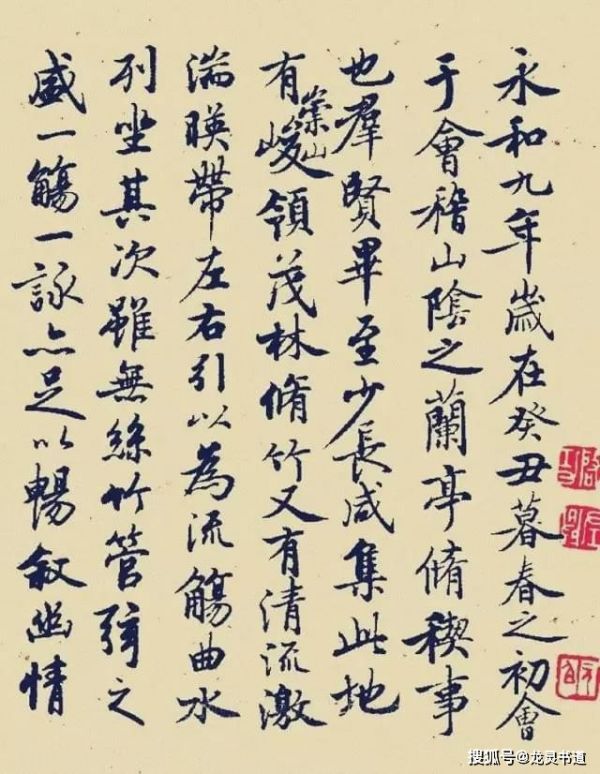 永和九年歲在癸丑暮春之初會
于會稽山陰之蘭亭脩稧事
也羣賢畢至少長咸集此地
有崇山峻領茂林脩竹又有清流激
湍暎帶左右引以為流觴曲水
列坐其次雖無絲竹管弦之
盛一觴一詠亦足以暢敘幽情
搜狐号@龙灵书道